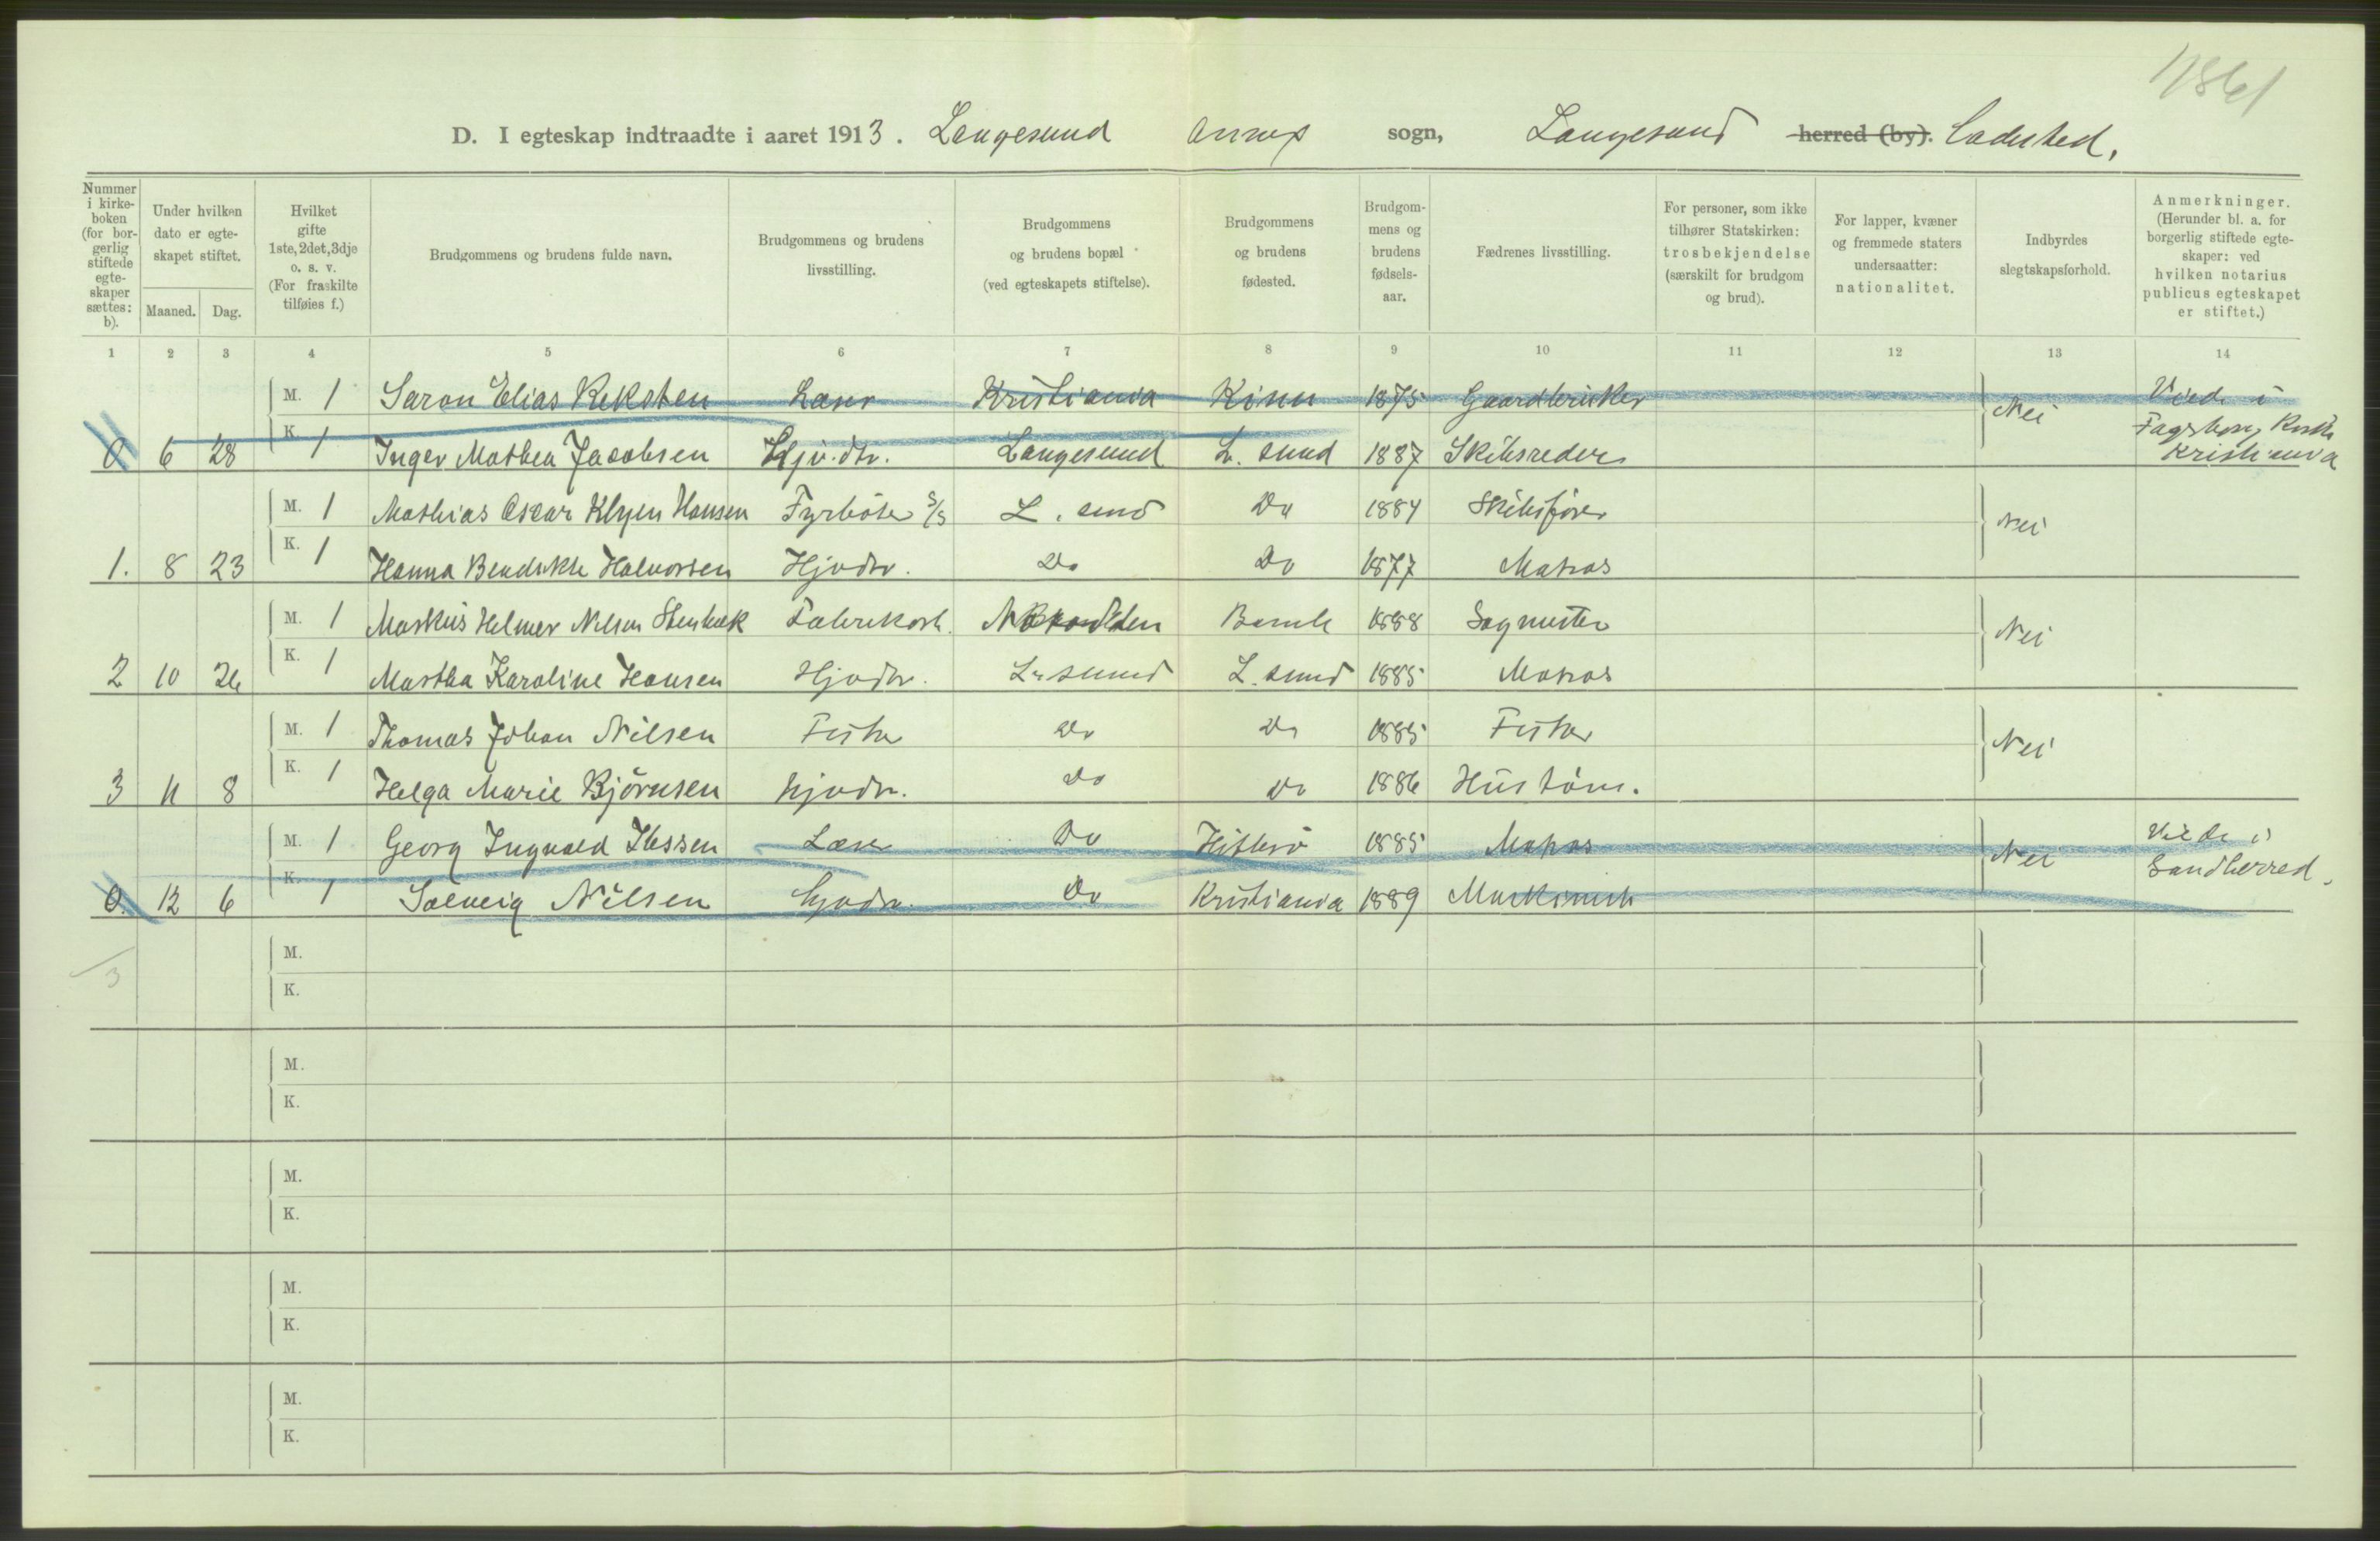 1861
D. I egteskap indtraadte i aaret 1913. Langesund annex sogn, Langesund herred (by). Ladested,
Nummer i kirkeboken (for borgerlig stiftede egteskaper sættes: b).
Under hvilken dato er egteskapet stiftet.
Maaned. Dag.
Hvilket gifte 1ste, 2det, 3dje o. s. v. (For fraskilte tilføies f.)
Brudgommens og brudens fulde navn.
Brudgommens og brudens livsstilling.
Brudgommens og brudens bopæl (ved egteskapets stiftelse).
Brudgommens og brudens fødested.
Brudgommens og brudens fødselsaar.
Fædrenes livsstilling.
For personer, som ikke tilhører Statskirken: trosbekjendelse (særskilt for brudgom og brud).
For lapper, kvæner og fremmede staters undersaatter: nationalitet.
Indbyrdes slegtskapsforhold.
Anmerkninger. (Herunder bl. a. for borgerlig stiftede egteskaper: ved hvilken notarius publicus egteskapet er stiftet.)
1 2 3 4 5 6 7 8 9 10 11 12 13 14
M. 1 Saron Elias Reksten Læser Kristiania Kinn 1875 Gaardbruker Nei Viede i
0 6 28 K. 1 Inger Mathea Jacobsen Hjv.dtr. Langesund L. sund 1887 Skibsreder Fagerborg Kirke Kristiania
M. 1 Mathias Oscar Klyen Hansen Fyrbøter S/S L. sund Do 1884 Skibsfører Nei
1. 8 23 K. 1 Hanna Bendikte Halvorsen Hjvdtr. Do Do 1877 Matros
M. 1 Markus Helmer Nilsen Stenbæk Fabrikarb. Bamle 1888 Sagmester Nei
2 10 26 K. 1 Martha Karoline Hansen Hjvdtr. L. sund L. sund 1885 Matros
M. 1 Thomas Johan Nilsen Fisker Do Do 1885 Fisker Nei
3 11 8 K. 1 Helga Marie Björnsen Hjvdtr. Do Do 1886 Hustøm.
M. 1 Georg Ingvald Do Hitterø 1885 Matros Nei Viede i
0. 12 6 K. 1 Solveig Nilsen Hjvdtr. Do Kristiania 1889 Maskinist Sandherred.
3
M.
K.
M.
K.
M.
K.
M.
K.
M.
K.